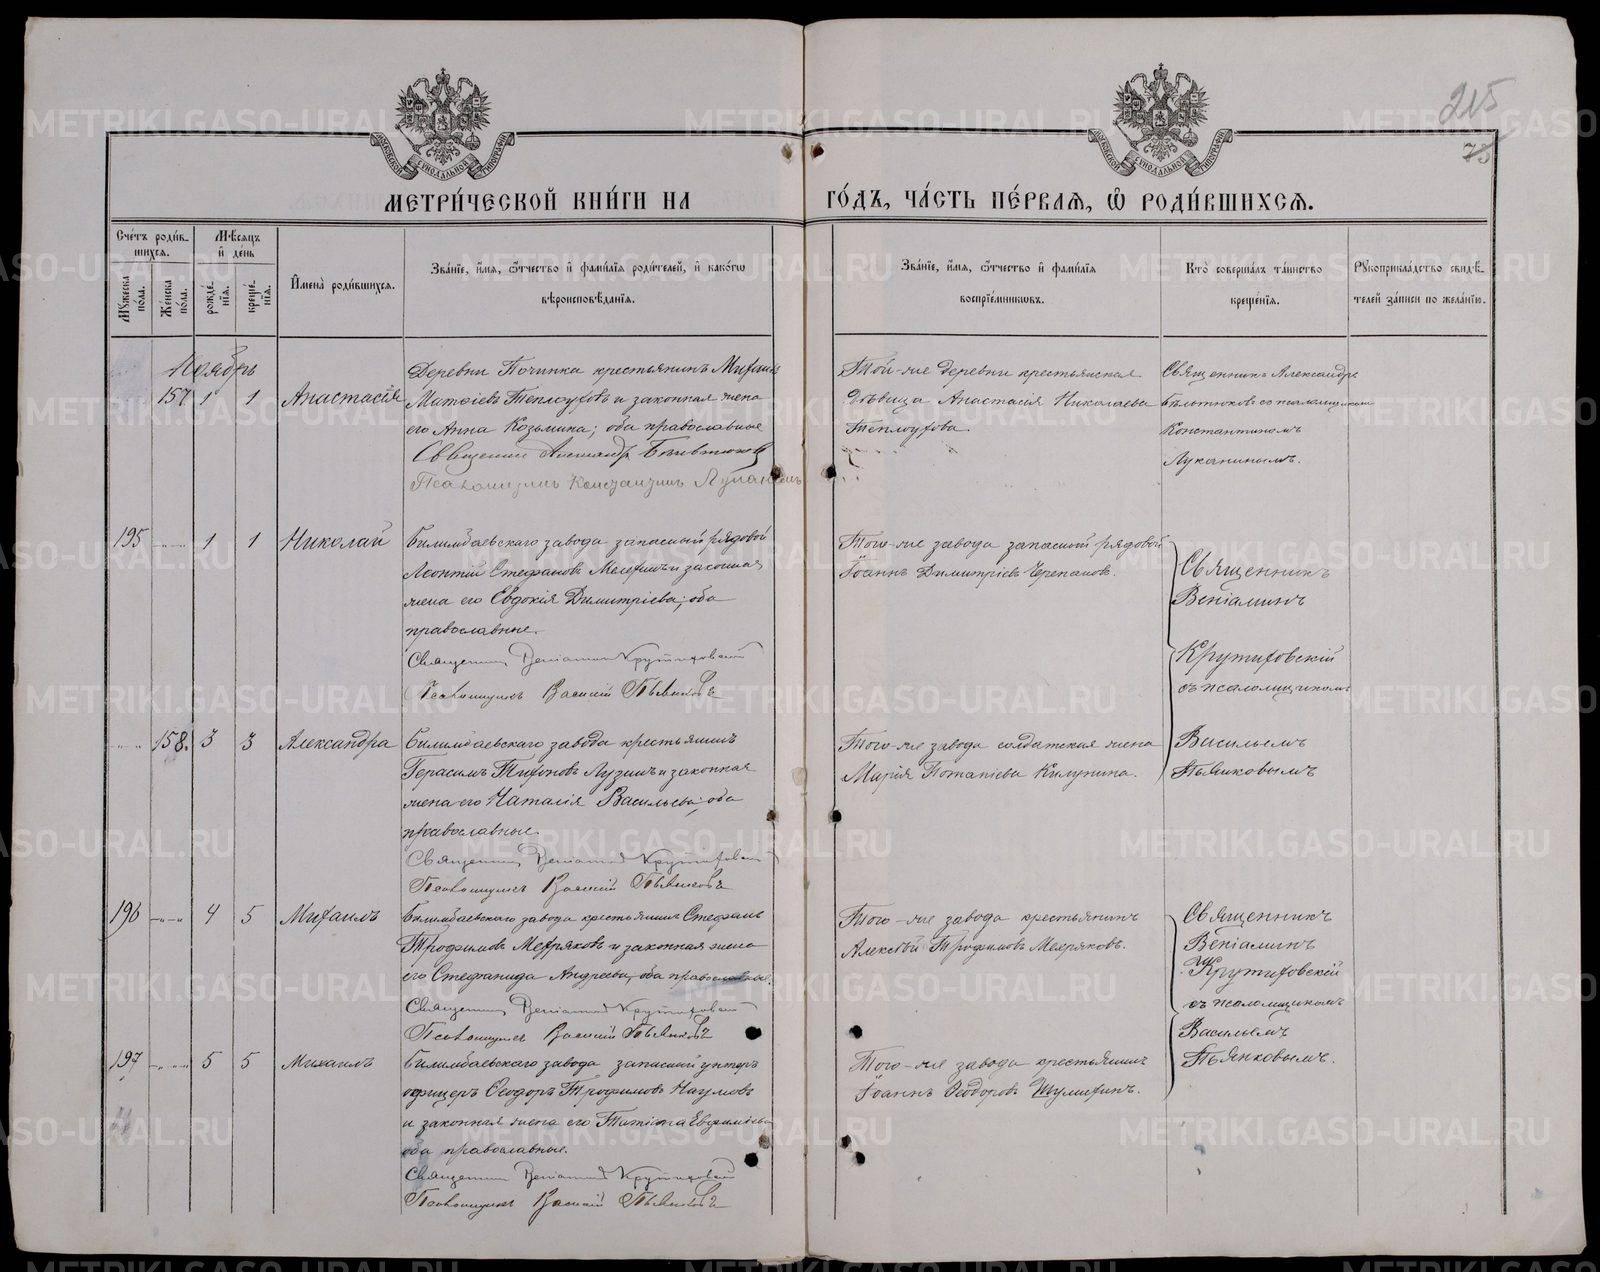 215
73
МОСКОВСКОЙ СѴНОДАЛЬНОЙ ТИПОГРАФІИ
МОСКОВСКОЙ СѴНОДАЛЬНОЙ ТИПОГРАФІИ
МЕТРИ́ЧЕСКОЙ КНИ́ГИ НА ГО́ДЪ, ЧА́СТЬ ПЕ́РВАѦ, Ѡ РОДИ́ВШИХСѦ.
Сче́тъ роди́в-
шихсѧ.
Мꙋ́жеска по́ла.
Же́нска по́ла.
Мѣ́сѧцъ и҆ де́нь
рожде́нїѧ.
креще́нїѧ.
И҆мена̀ роди́вшихсѧ.
Зва́нїе, и҆́мѧ, ѻ҆́тчество и҆ фами́лїѧ роди́телей, и҆ како́гѡ
вѣроисповѣ́данїѧ.
Зва́нїе, и҆́мѧ, ѻ҆́тчество и҆ фами́лїѧ
воспрїе́мникѡвъ.
Кто̀ соверша́лъ та́инство
креще́нїѧ.
Рꙋкоприкла́дство свидѣ́-
телей за́писи по жела́нїю.
Ноябрь
157 1 1 Анастасія
Деревни Починка крестьянинъ Михаилъ
Матѳіевъ Теплоуховъ и законная жена
его Анна Козьмина; оба православные
Священникъ Александръ Бѣльтюковъ
Псаломщикъ Константинъ Луканинъ
Той-же деревни крестьянская
дѣвица Анастасія Николаева
Теплоухова.
Священникъ Александръ
Бѣльтюковъ съ псаломщикомъ
Константиномъ
Луканинымъ.
195 1 1 Николай
Билимбаевскаго завода запасный рядовой
Леонтій Стефановъ и законная
жена его Евдокія Димитріева; оба
православные.
Священникъ Веніаминъ Крутиховскій
Псаломщикъ Василій Пьянковъ
Того-же завода запасный рядовой
Іоаннъ Димитріевъ Черепановъ.
Священникъ
Веніаминъ
Крутиховскій
съ псаломщикомъ
Васильемъ
Пьянковымъ
158. 3 3 Александра
Билимбаевскаго завода крестьянинъ
Герасимъ Тихоновъ Лузинъ и законная
жена его Наталія Васильева; оба
православные.
Священникъ Веніаминъ Крутиховскій
Псаломщикъ Василій Пьянковъ
Того-же завода солдатская жена
Марія Потапіева Килунина.
196 4 5 Михаилъ
Билимбаевскаго завода крестьянинъ Стефанъ
Трофимовъ Мехряковъ и законная жена
его Стефанида Андреева, оба православные.
Священникъ Веніаминъ Крутиховскій
Псаломщикъ Василій Пьянковъ
Того-же завода крестьянинъ
Алексѣй Трофимовъ Мехряковъ.
Священникъ
Веніаминъ
Крутиховскій
съ псаломщикомъ
Васильемъ
Пьянковымъ.
197 5 5 Михаилъ
Билимбаевскаго завода запасный унтеръ
офицеръ Ѳеодоръ Трофимовъ Наумовъ
и законная жена его Татіана Евфиміева
оба православные.
Священникъ Веніаминъ Крутиховскій
Псаломщикъ Василій Пьянковъ
Того-же завода крестьянинъ
Іоаннъ Ѳеодоровъ Шумихинъ.
METRIKI.GASO-URAL.RU